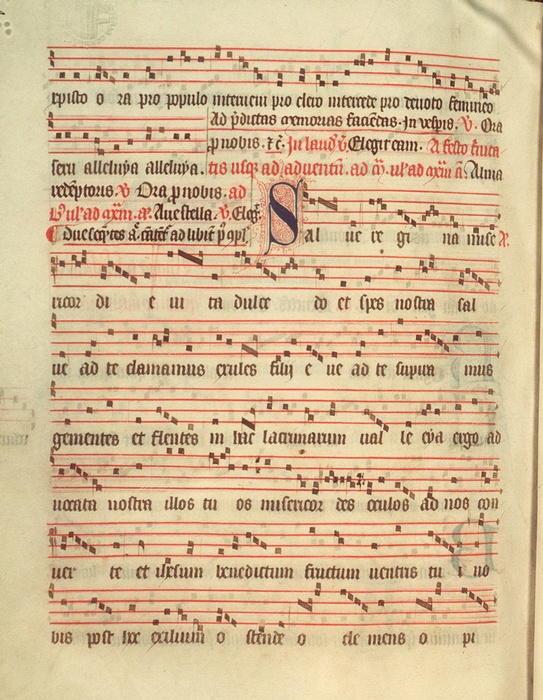 xpisto o ra pro populo interveni pro clero intercede pro devoto femineo
Ad p̄dictas memorias faciēdas. In vesp̄is. V. Ora
p nobis. ⁊c̄. In laud. V. Elegit eam. A festo trinita
sexu alleluya alleluya. tis usqꝫ ad adventū. ad Alma
redēptoris. V. Ora p nobis. ad
Ave stella. V. Eleg̅.
Due seqn̄tes ad libit̄ p
Sal ve re gi na mise
ricor di e vi ta dulce do et spes nostra sal
ve ad te clamamus exules filij e ve ad te suspira mus
gementes et flentes in hac lacrimarum val le eya ergo ad
vocata nostra illos tu os misericor des oculos ad nos con
ver te et ihesum benedictum fructum ventris tu i no
bis post hoc exilium o stende o cle mens o pi